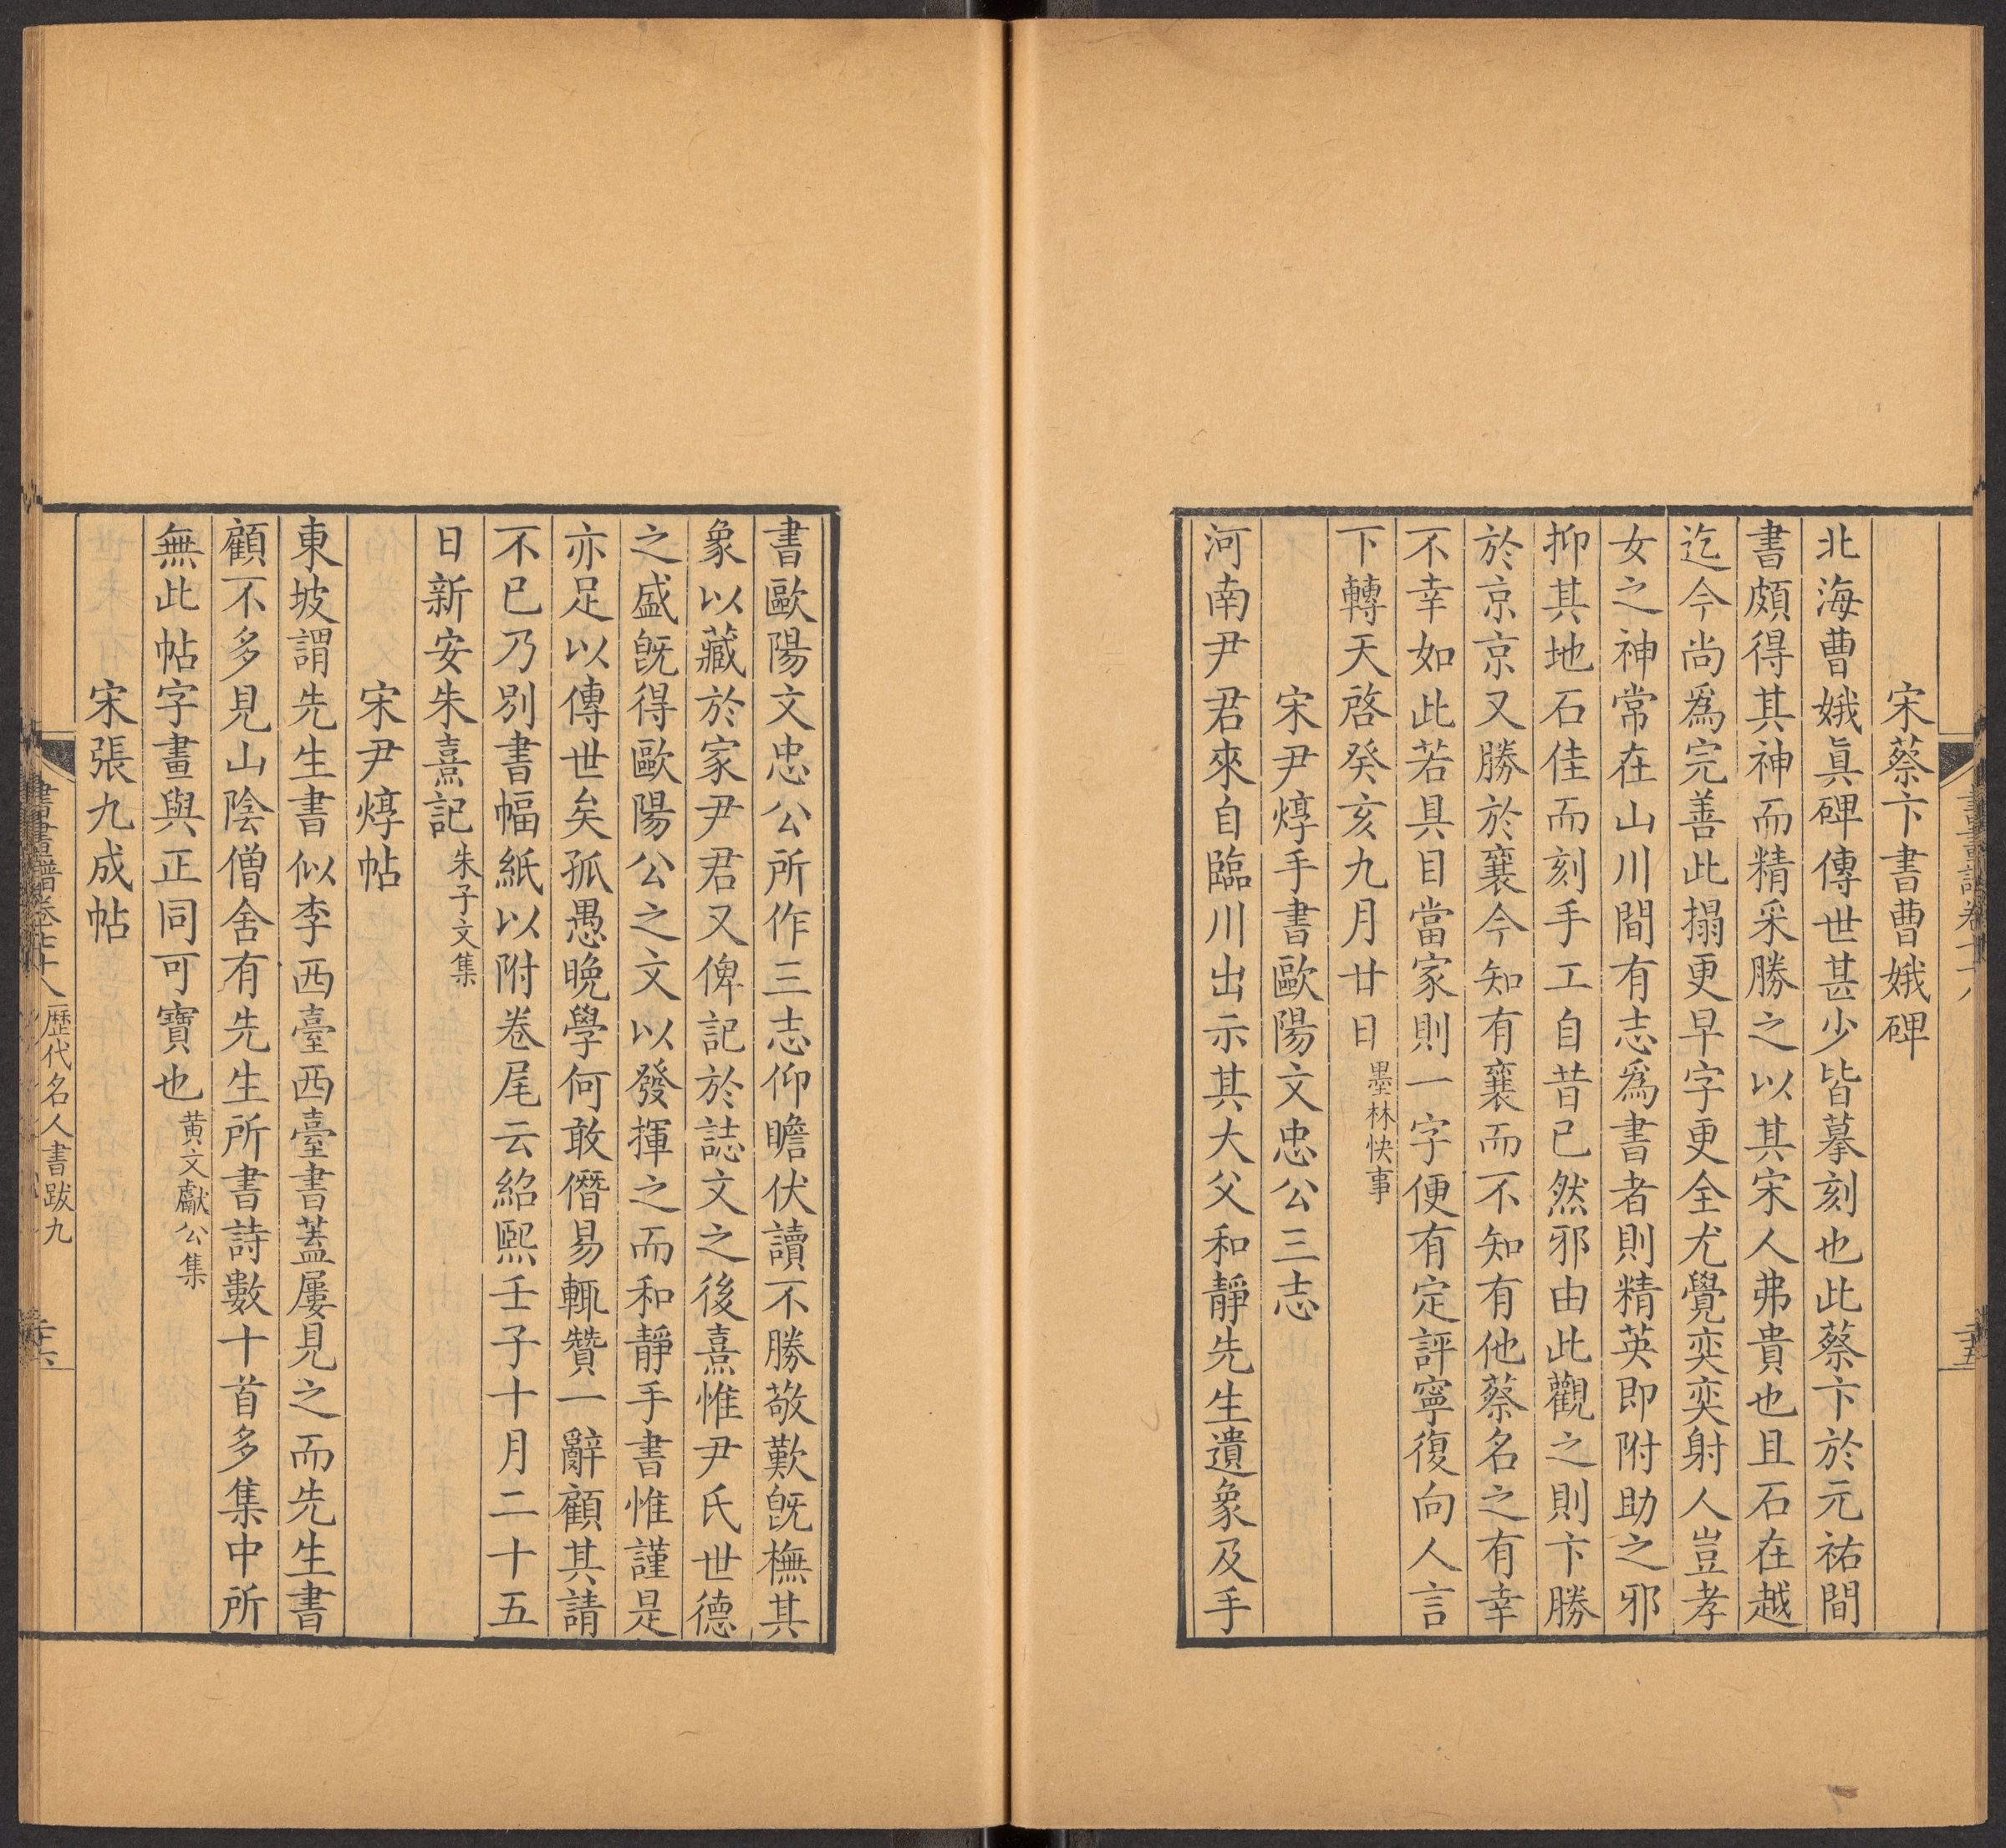 宋蔡卞書曹娥碑
北海曹娥眞碑傳世甚少皆摹刻也此蔡卞於元祐間
書頗得其神而精采勝之以其宋人弗貴也且石在越
迄今尚爲完善此搨更早字更全尤覺奕奕射人豈孝
女之神常在山川間有志爲書者則精英即附助之邪
抑其地石佳而刻手工自昔已然邪由此觀之則卞勝
於京京又勝於襄今知有襄而不知有他蔡名之有幸
不幸如此若具目當家則一字便有定評寧復向人言
下轉天啓癸亥九月廿日墨林快事
宋尹焞手書歐陽文忠公三志
河南尹君來自臨川出示其大父和靜先生遺象及手
書歐陽文忠公所作三志仰瞻伏讀不勝敬歎旣橅其
象以藏於家尹君又俾記於誌文之後熹惟尹氏世德
之盛旣得歐陽公之文以發揮之而和靜手書惟謹是
亦足以傳世矣孤愚晚學何敢僭易輒贊一辭顧其請
不已乃別書幅紙以附卷尾云紹熙壬子十月二十五
日新安朱熹記朱子文集
宋尹焞帖
東坡謂先生書似李西臺西臺書蓋屢見之而先生書
顧不多見山陰僧舍有先生所書詩數十首多集中所
無此帖字畫與正同可寶也黃文獻公集
宋張九成帖
書畫譜卷七十八 歷代名人書跋九 二十六